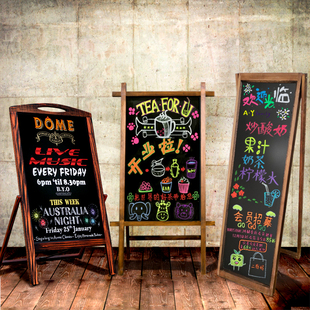 DÔME
LIVE
MUSIC
EVERY FRIDAY
6pm 'til 8.30pm
B.Y.O
THIS WEEK
AUSTRALIA
NIGHT
Friday 25th January
TEA FOR U
开业啦!
欢迎光临
A·Y
炒酸奶
果汁
奶茶
柠檬水
会员招募
GO GO GO